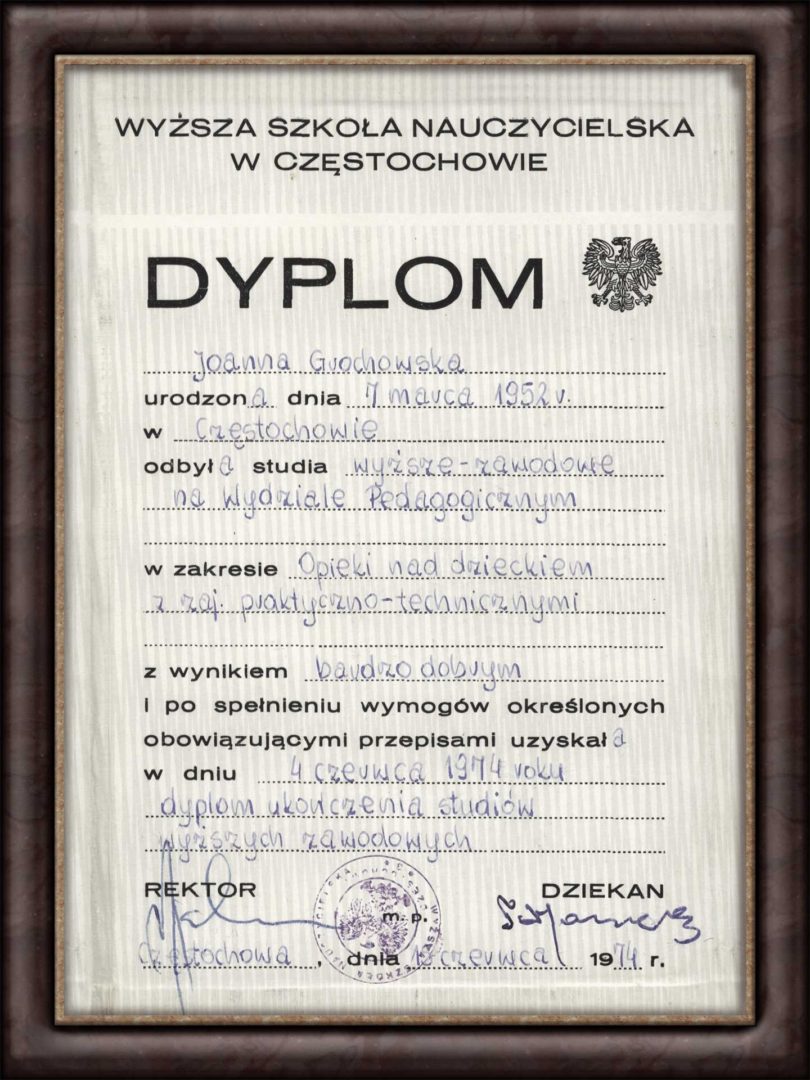 WYŻSZA SZKOŁA NAUCZYCIELSKA
W CZĘSTOCHOWIE
DYPLOM
Joanna Grochowska
urodzona dnia 7 marca 1952 r.
w Częstochowie
odbyła studia wyższe-zawodowe
na Wydziale Pedagogicznym
w zakresie Opieki nad dzieckiem
z zaj. praktyczno-technicznymi
z wynikiem bardzo dobrym
i po spełnieniu wymogów określonych
obowiązującymi przepisami uzyskała
w dniu 4 czerwca 1974 roku
dyplom ukończenia studiów
wyższych zawodowych
REKTOR DZIEKAN
m. p.
Częstochowa, dnia czerwca 1974 r.